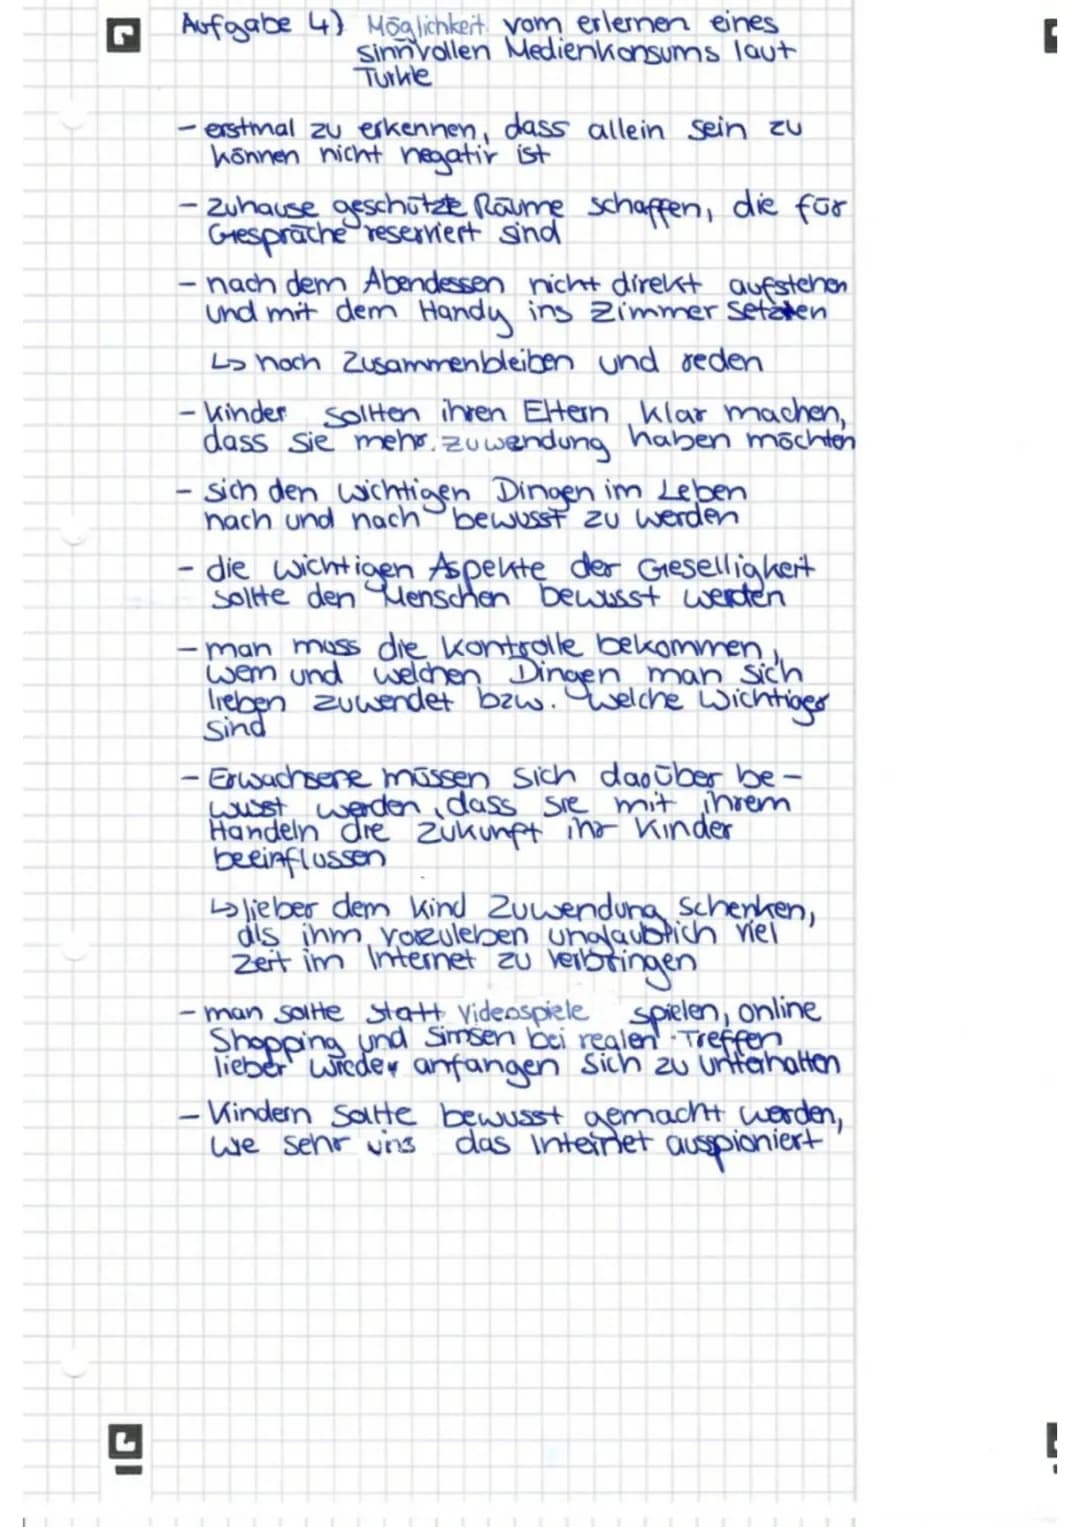 Aufgabe 4) Möglichkeit vom erlernen eines
sinnvollen Medienkonsums laut
Turkle
- erstmal zu erkennen, dass allein sein zu
können nicht negativ ist
- Zuhause geschützte Räume schaffen, die für
Gespräche reserviert sind
- nach dem Abendessen nicht direkt aufstehen
und mit dem Handy ins Zimmer setzten
↳ noch Zusammenbleiben und reden
- Kinder sollten ihren Eltern klar machen,
dass sie mehr zuwendung haben möchten
- sich den wichtigen Dingen im Leben
nach und nach bewusst zu werden
- die wichtigen Aspekte der Geselligkeit
sollte den Menschen bewusst werden
- man muss die Kontrolle bekommen,
wem und welchen Dingen man sich
lieben zuwendet bzw. welche wichtiger
sind
- Erwachsene müssen sich darüber be-
wusst werden, dass sie mit ihrem
Handeln die Zukunft ihr Kinder
beeinflussen
↳ lieber dem Kind Zuwendung schenken,
als ihm vorzuleben unglaublich viel
Zeit im Internet zu verbringen
- man sollte statt Videospiele spielen, online
Shopping und Simsen bei realen Treffen
lieber wieder anfangen sich zu unterhalten
- Kindern sollte bewusst gemacht werden,
we sehr uns das Internet ausspioniert